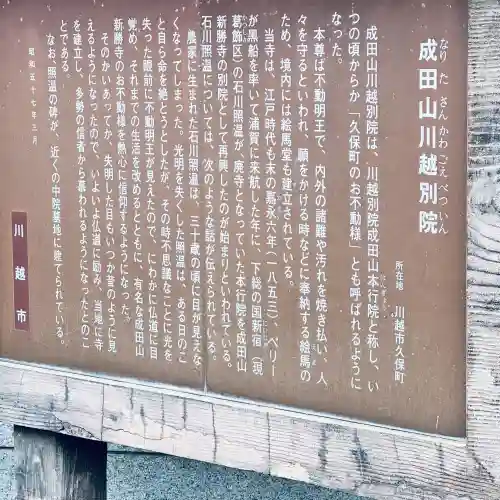 成田山川越別院
なりたさんかわごえべついん
所在地　川越市久保町
成田山川越別院は、川越別院成田山本行院と称し、い
つの頃からか「久保町のお不動様」とも呼ばれるように
なった。
本尊は不動明王で、内外の諸難や汚れを焼き払い、人
々を守るといわれ、願をかける時などに奉納する絵馬の
ため、境内には絵馬堂も建立されている。
当寺は、江戸時代も末の嘉永六年（一八五三）、ペリー
が黒船を率いて浦賀に来航した年に、下総の国新宿（現
葛飾区）の石川照温が、廃寺となっていた本行院を成田山
新勝寺の別院として再興したのが始まりといわれている。
石川照温については、次のような話が伝えられている。
農家に生まれた石川照温は、三十歳の頃に目が見えな
くなってしまった。光明を失くした照温は、ある日のこ
と自ら命を絶とうとしたが、その時不思議なことに光を
失った眼前に不動明王が見えたので、にわかに仏道に目
覚め、それまでの生活を改めるとともに、有名な成田山
新勝寺のお不動様を熱心に信仰するようになった。
そのかいあってか、失明した目もいつか昔のように見
えるようになったので、いよいよ仏道に励み、当地に寺
を建立し、多勢の信者から慕われるようになったとのこ
とである。
なお、照温の碑が、近くの中院墓地に建てられている。
昭和五十七年三月
川越市